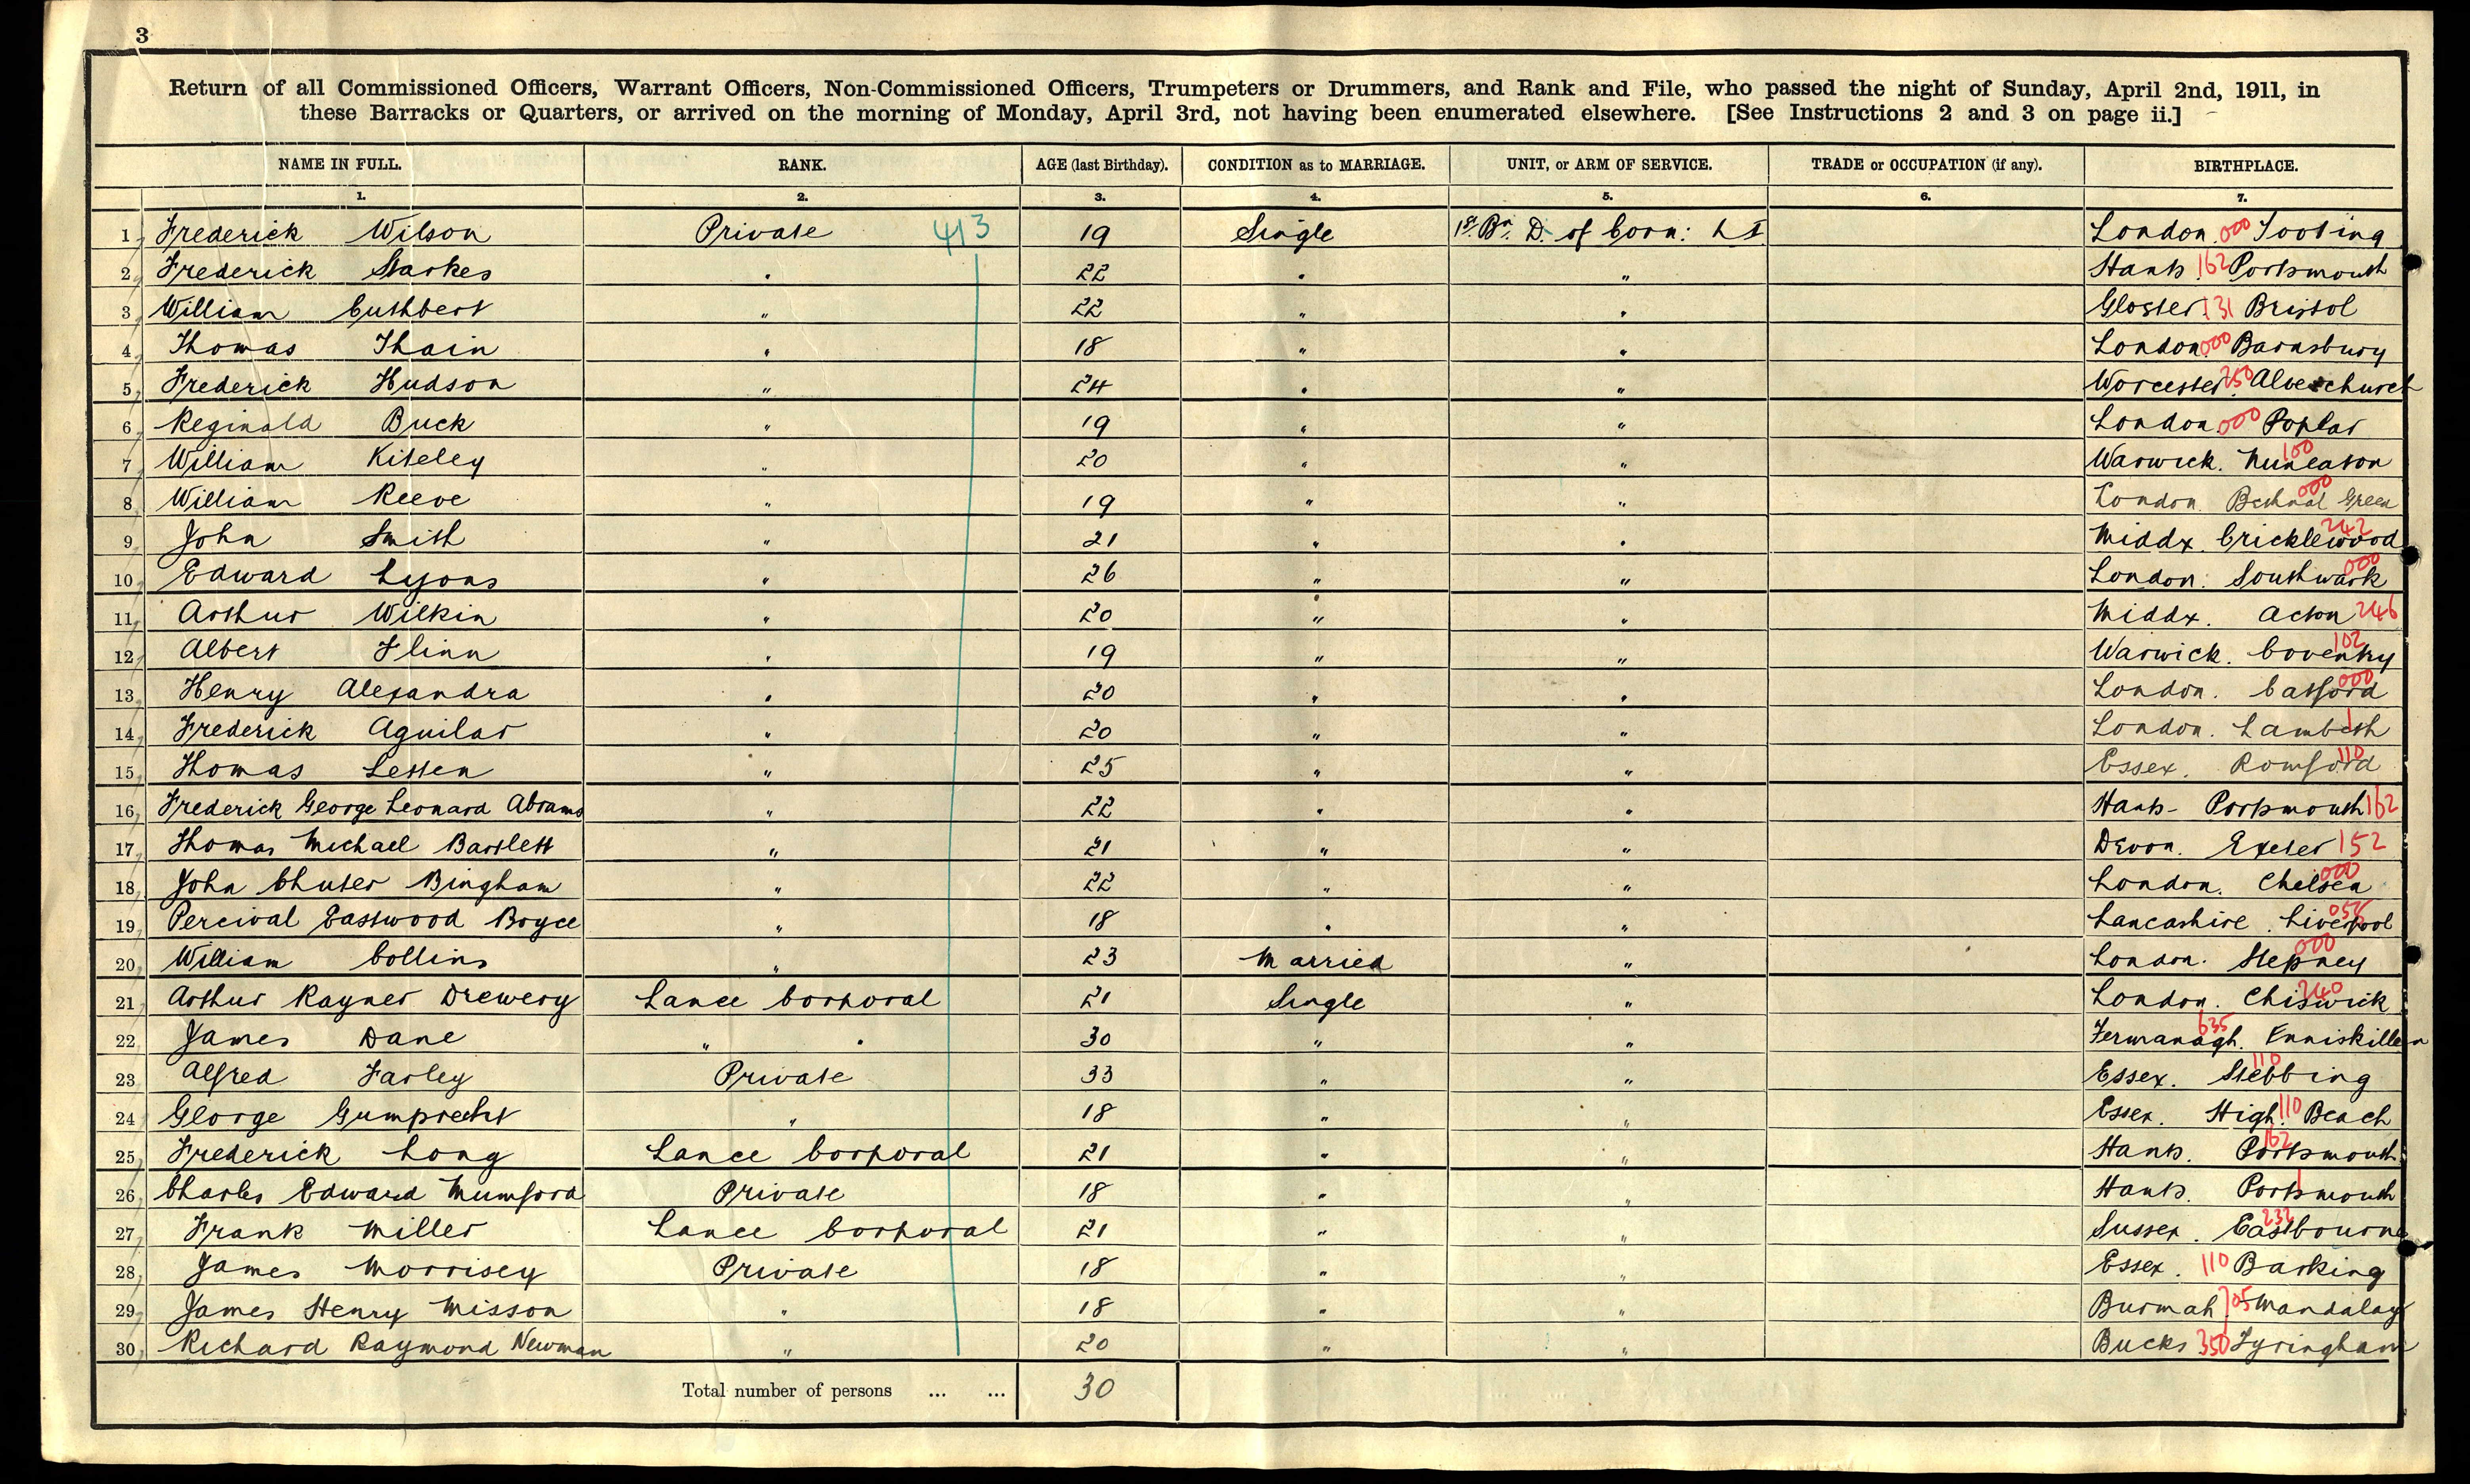 3
Return of all Commissioned Officers, Warrant Officers, Non-Commissioned Officers, Trumpeters or Drummers, and Rank and File, who passed the night of Sunday, April 2nd, 1911, in
these Barracks or Quarters, or arrived on the morning of Monday, April 3rd, not having been enumerated elsewhere. [See Instructions 2 and 3 on page ii.]
NAME IN FULL. RANK. AGE (last Birthday). CONDITION as to MARRIAGE. UNIT, or ARM OF SERVICE. TRADE or OCCUPATION (if any). BIRTHPLACE.
1. 2. 3. 4. 5. 6. 7.
1 Frederick Wilson Private 413 19 Single 1st Bn. D. of Corn: L I. London. 000 Tooting
2 Frederick Starkes " 22 " " Hants 162 Portsmouth
3 William Cuthbert " 22 " " Gloster 131 Bristol
4 Thomas Thain " 18 " " London. 000 Barnsbury
5 Frederick Hudson " 24 " " Worcester 250 Alvechurch
6 Reginald Buck " 19 " " London 000 Poplar
7 William Kiteley " 20 " " Warwick. Nuneaton 100
8 William Reeve " 19 " " London Bethnal Green 000
9 John Smith " 21 " " Middx. Cricklewood 242
10 Edward Lyons " 26 " " London. Southwark 000
11 Arthur Wilkin " 20 " " Middx. Acton 246
12 Albert Flinn " 19 " " Warwick. Coventry 102
13 Henry Alexandra " 20 " " London. Catford 000
14 Frederick Aguilar " 20 " " London. Lambeth
15 Thomas Letten " 25 " " Essex. Romford 110
16 Frederick George Leonard Abrams " 22 " " Hants - Portsmouth 162
17 Thomas Michael Bartlett " 21 " " Devon. Exeter 152
18 John Chuter Bingham " 22 " " London. Chelsea 000
19 Percival Eastwood Boyce " 18 " " Lancashire. Liverpool
20 William Collins " 23 Married " London. Stepney 000
21 Arthur Rayner Drewery Lance Corporal 21 Single " London. Chiswick 240
22 James Dane " " 30 " " Fermanagh. Enniskillen 635
23 Alfred Farley Private 33 " " Essex. Stebbing 110
24 George Gumprecht " 18 " " Essex. High 110 Beach
25 Frederick Long Lance Corporal 21 " " Hants. Portsmouth 162
26 Charles Edward Mumford Private 18 " " Hants. Portsmouth
27 Frank Miller Lance Corporal 21 " " Sussex. Eastbourne 232
28 James Morrisey Private 18 " " Essex. 110 Barking
29 James Henry Misson " 18 " " Burmah 705 Mandalay
30 Richard Raymond Newman " 20 " " Bucks 350 Tyringham
Total number of persons ... ... 30